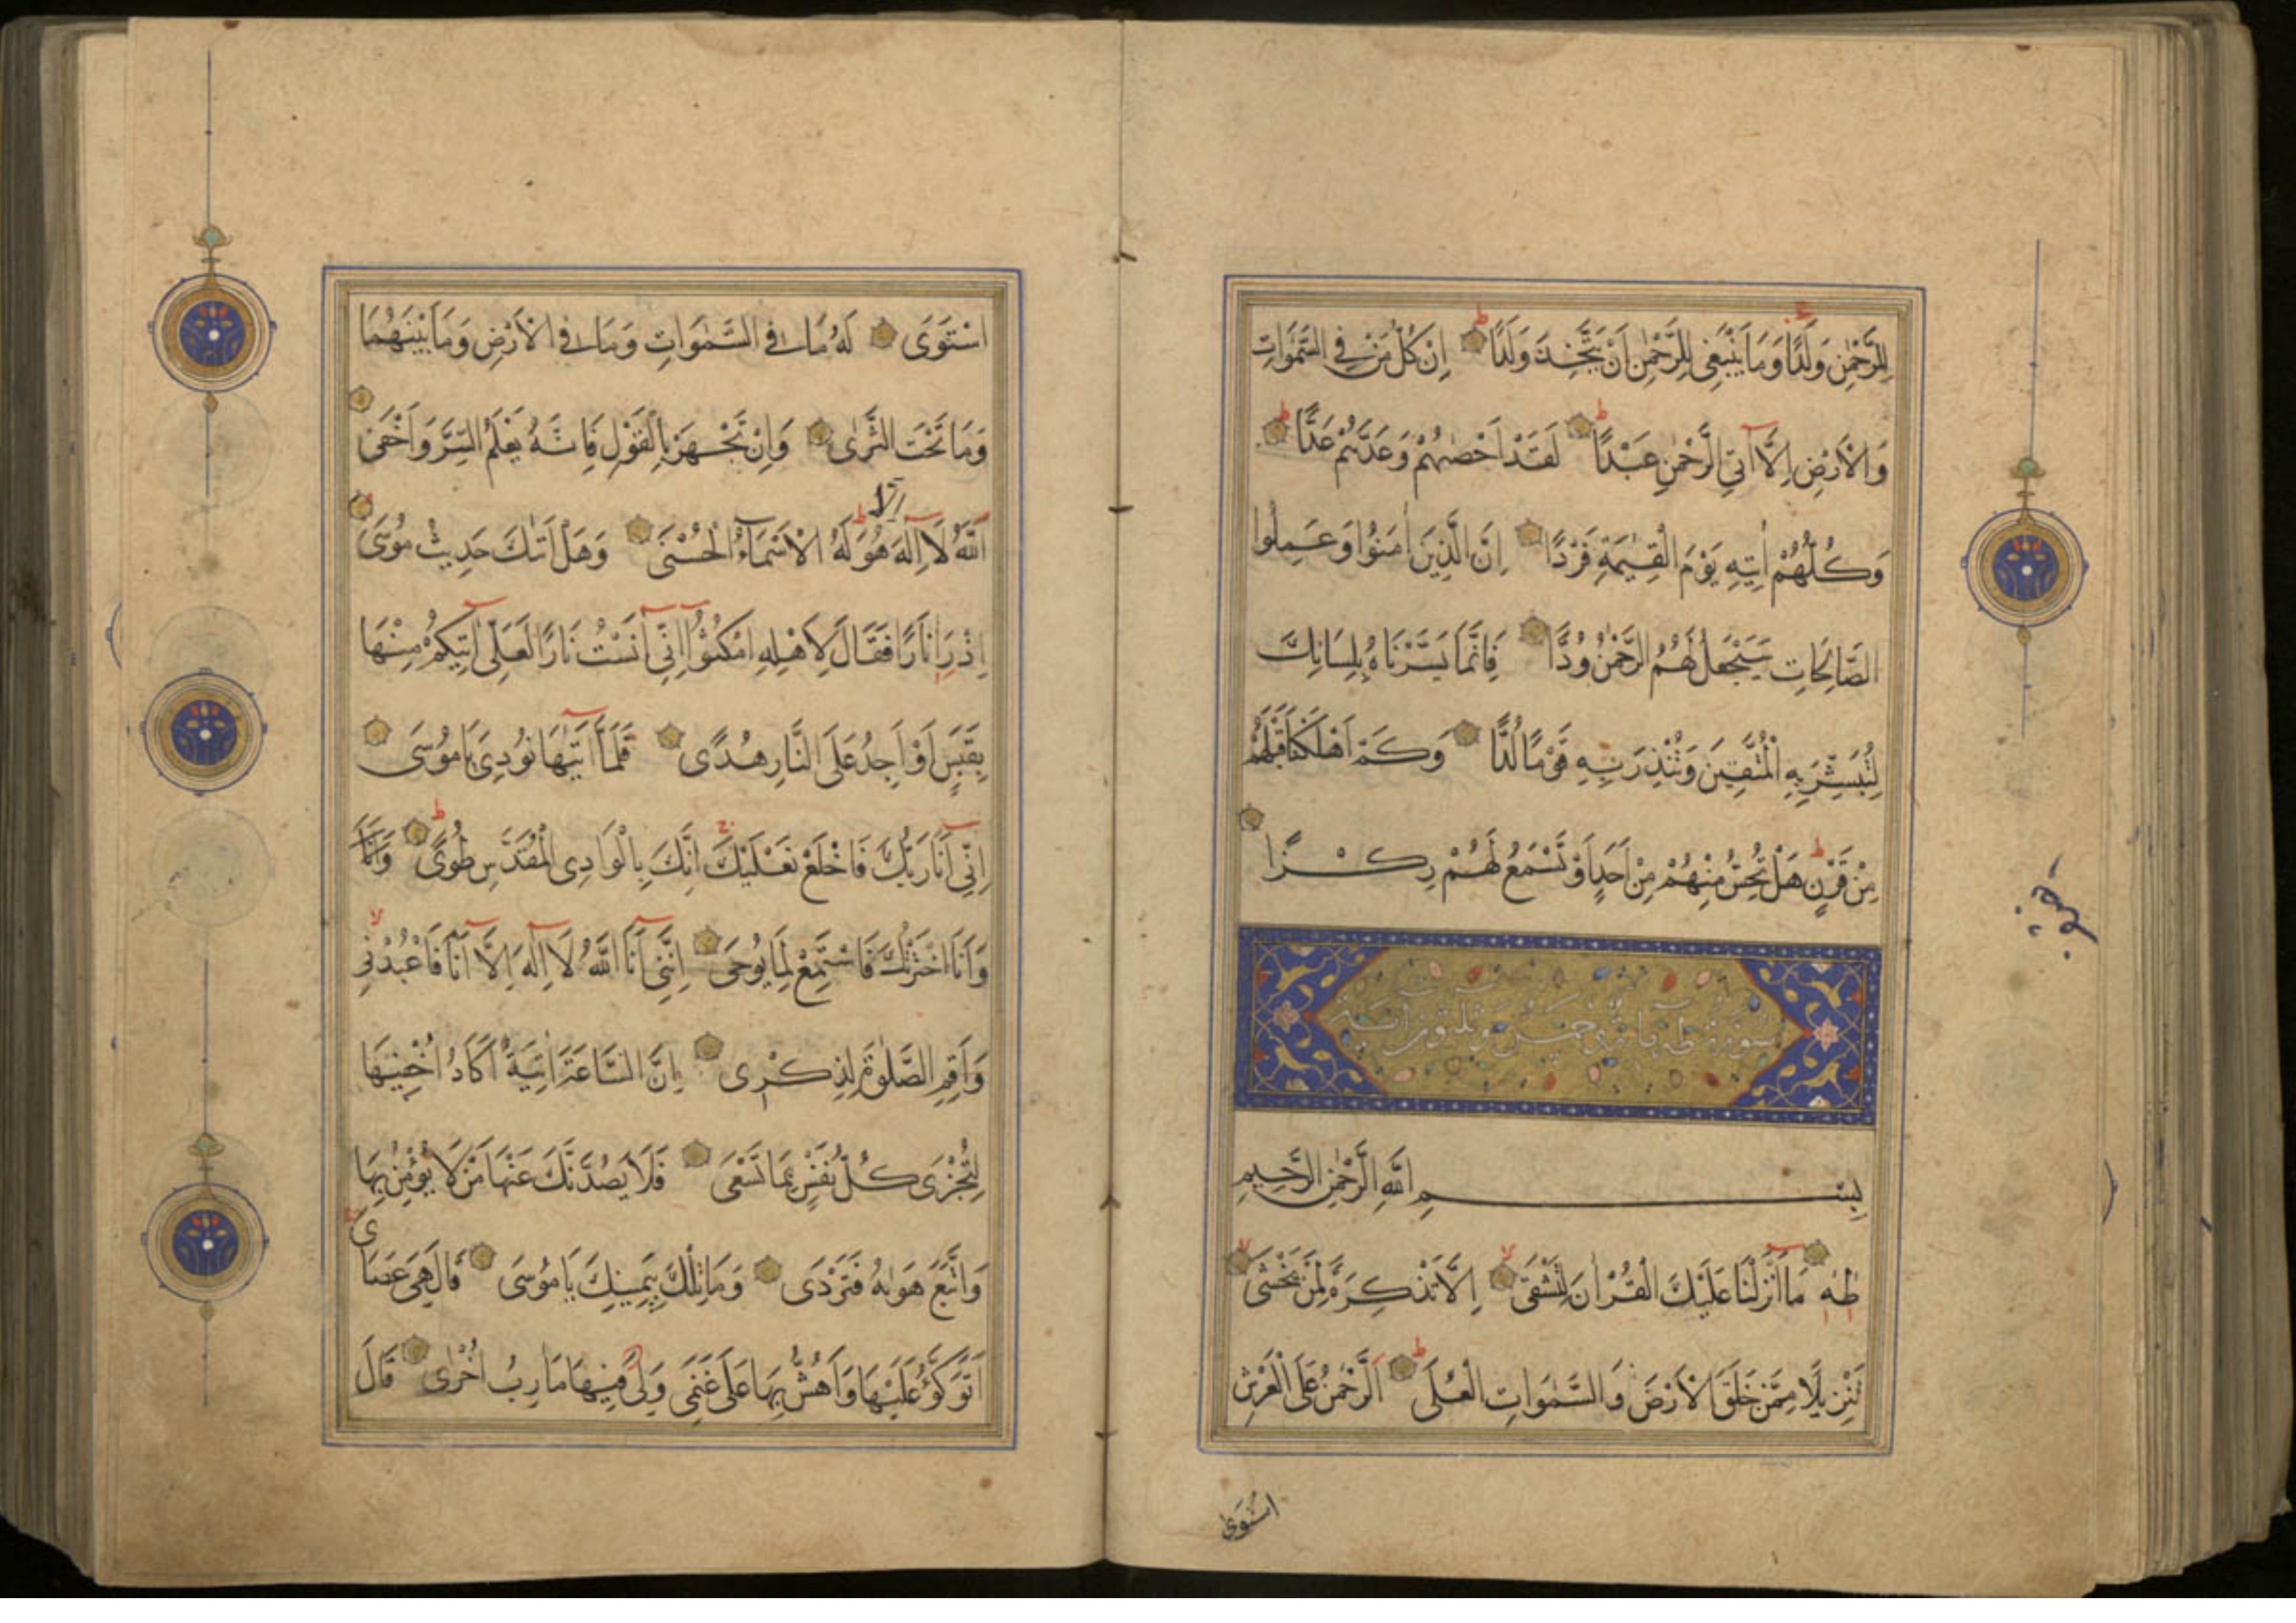 لِلرَّحْمٰنِ وَلَدًا وَمَا يَنْبَغِى لِلرَّحْمٰنِ اَنْ يَتَّخِذَ وَلَدًا اِنْ كُلُّ مَنْ فِى السَّمٰوَاتِ
وَالْاَرْضِ اِلَّا اٰتِى الرَّحْمٰنِ عَبْدًا لَقَدْ اَحْصٰيهُمْ وَعَدَّهُمْ عَدًّا
وَكُلُّهُمْ اٰتِيهِ يَوْمَ الْقِيٰمَةِ فَرْدًا اِنَّ الَّذِينَ اٰمَنُوا وَعَمِلُوا
الصَّالِحَاتِ سَيَجْعَلُ لَهُمُ الرَّحْمٰنُ وُدًّا فَاِنَّمَا يَسَّرْنَاهُ بِلِسَانِكَ
لِتُبَشِّرَ بِهِ الْمُتَّقِينَ وَتُنْذِرَ بِهِ قَوْمًا لُدًّا وَكَمْ اَهْلَكْنَا قَبْلَهُمْ
مِنْ قَرْنٍ هَلْ تُحِسُّ مِنْهُمْ مِنْ اَحَدٍ اَوْ تَسْمَعُ لَهُمْ رِكْزًا
سورة طه
بِسْمِ اللّٰهِ الرَّحْمٰنِ الرَّحِيمِ
طٰهٰ مَا اَنْزَلْنَا عَلَيْكَ الْقُرْاٰنَ لِتَشْقَى اِلَّا تَذْكِرَةً لِمَنْ يَخْشَى
تَنْزِيلًا مِمَّنْ خَلَقَ الْاَرْضَ وَالسَّمٰوَاتِ الْعُلَى اَلرَّحْمٰنُ عَلَى الْعَرْشِ
استوى
اسْتَوَى لَهُ مَا فِى السَّمٰوَاتِ وَمَا فِى الْاَرْضِ وَمَا بَيْنَهُمَا
وَمَا تَحْتَ الثَّرٰى وَاِنْ تَجْهَرْ بِالْقَوْلِ فَاِنَّهُ يَعْلَمُ السِّرَّ وَاَخْفَى
اَللّٰهُ لَا اِلٰهَ اِلَّا هُوَ لَهُ الْاَسْمَاءُ الْحُسْنَى وَهَلْ اَتٰكَ حَدِيثُ مُوسَى
اِذْ رَاٰ نَارًا فَقَالَ لِاَهْلِهِ امْكُثُوا اِنِّى اٰنَسْتُ نَارًا لَعَلِّى اٰتِيكُمْ مِنْهَا
بِقَبَسٍ اَوْ اَجِدُ عَلَى النَّارِ هُدًى فَلَمَّا اَتٰيهَا نُودِىَ يَا مُوسَى
اِنِّى اَنَا رَبُّكَ فَاخْلَعْ نَعْلَيْكَ اِنَّكَ بِالْوَادِى الْمُقَدَّسِ طُوًى وَاَنَا
وَاَنَا اخْتَرْتُكَ فَاسْتَمِعْ لِمَا يُوحَى اِنَّنِى اَنَا اللّٰهُ لَا اِلٰهَ اِلَّا اَنَا فَاعْبُدْنِى
وَاَقِمِ الصَّلٰوةَ لِذِكْرِى اِنَّ السَّاعَةَ اٰتِيَةٌ اَكَادُ اُخْفِيهَا
لِتُجْزَى كُلُّ نَفْسٍ بِمَا تَسْعَى فَلَا يَصُدَّنَّكَ عَنْهَا مَنْ لَا يُؤْمِنُ بِهَا
وَاتَّبَعَ هَوٰيهُ فَتَرْدَى وَمَا تِلْكَ بِيَمِينِكَ يَا مُوسَى قَالَ هِىَ عَصَاىَ
اَتَوَكَّؤُ عَلَيْهَا وَاَهُشُّ بِهَا عَلَى غَنَمِى وَلِىَ فِيهَا مَاٰرِبُ اُخْرٰى قَالَ